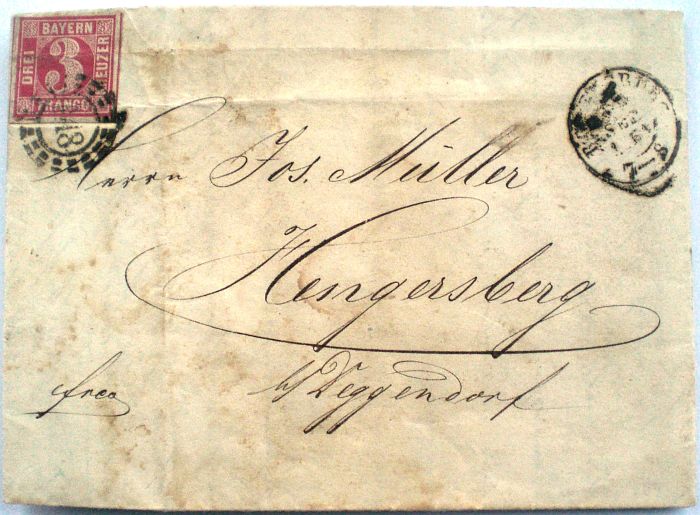 BAYERN
DREI
3
KREUZER
FRANCO
Herrn Jos. Müller
Hengersberg
b/ Deggendorf
frco